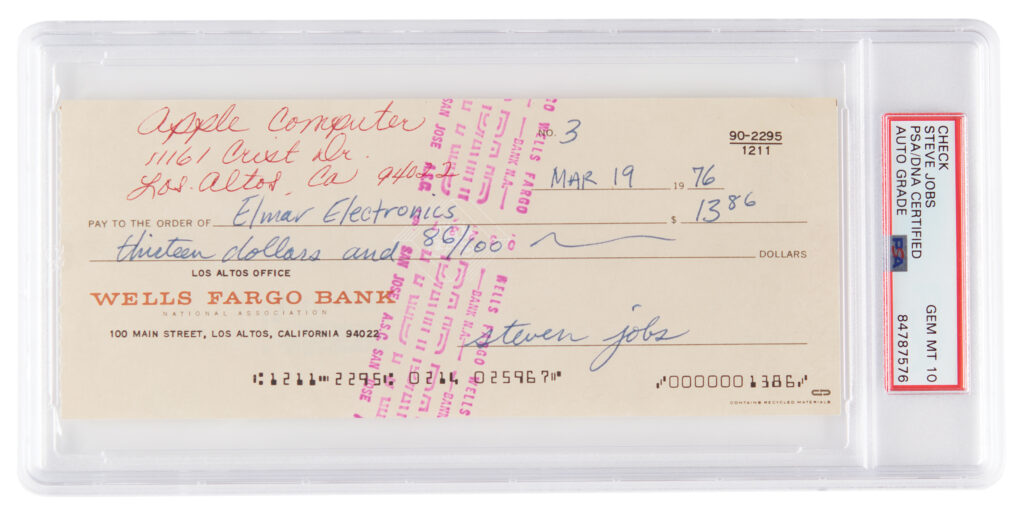 Apple Computer
11161 Crist Dr.
Los Altos, Ca 94022
NO. 3
90-2295
1211
MAR 19 1976
PAY TO THE ORDER OF Elmar Electronics $ 13 86
thirteen dollars and 86/100 DOLLARS
LOS ALTOS OFFICE
WELLS FARGO BANK
NATIONAL ASSOCIATION
100 MAIN STREET, LOS ALTOS, CALIFORNIA 94022
steven jobs
1211 2295 0214 025967 0000001386
CONTAINS RECYCLED MATERIALS
WELLS FARGO
BANK N.A.
SAN JOSE A.S.C.
WELLS FARGO WELLS
BANK N.A. BANK
SAN JOSE A.S.C. SAN JOSE
CHECK
STEVE JOBS
PSA/DNA CERTIFIED
AUTO GRADE
PSA
GEM MT 10
84787576